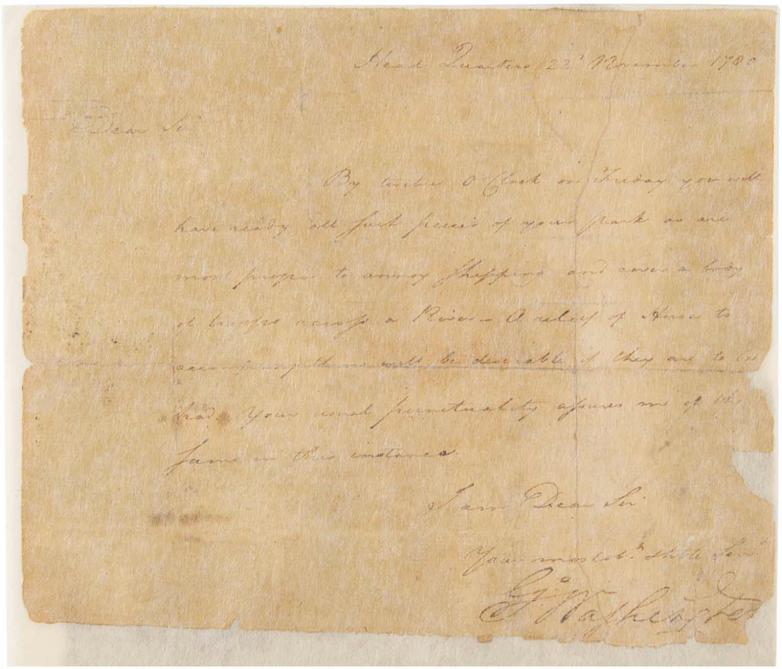 Head Quarters 22d November 1780
Dear Sir
By twelve O'Clock on Friday you will
have ready all such pieces of your park as are
most proper to annoy shipping and cover a body
of troops across a River – A relief of Horses to
accompany them will be desirable if they are to be
had. Your usual punctuality assures me of the
same in this instance.
I am Dear Sir
Your most obt. Hble Servt
Go: Washington